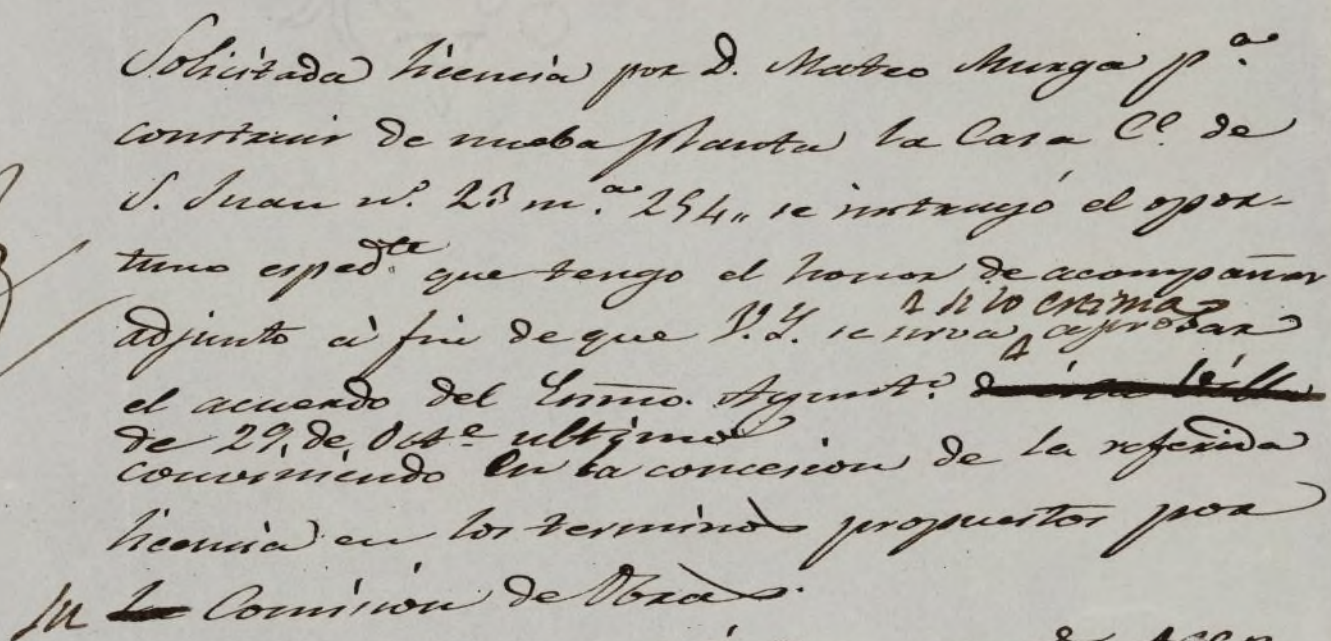 Solicitada licencia por D. Mateo Murga p.ª
construir de nueba planta la Casa C.e de
S. Juan n.º 23 m.ª 254,, se instruyó el opor-
tuno esped.te que tengo el honor de acompañar
adjunto á fin de que V.Y. se sirva, si lo estima, aprobar
el acuerdo del Exmo. Ayunt.º
de 29, de Oct.e ultimo
conviniendo en la concesion de la referida
licencia en los terminos propuestos por
su Comision de Obras.